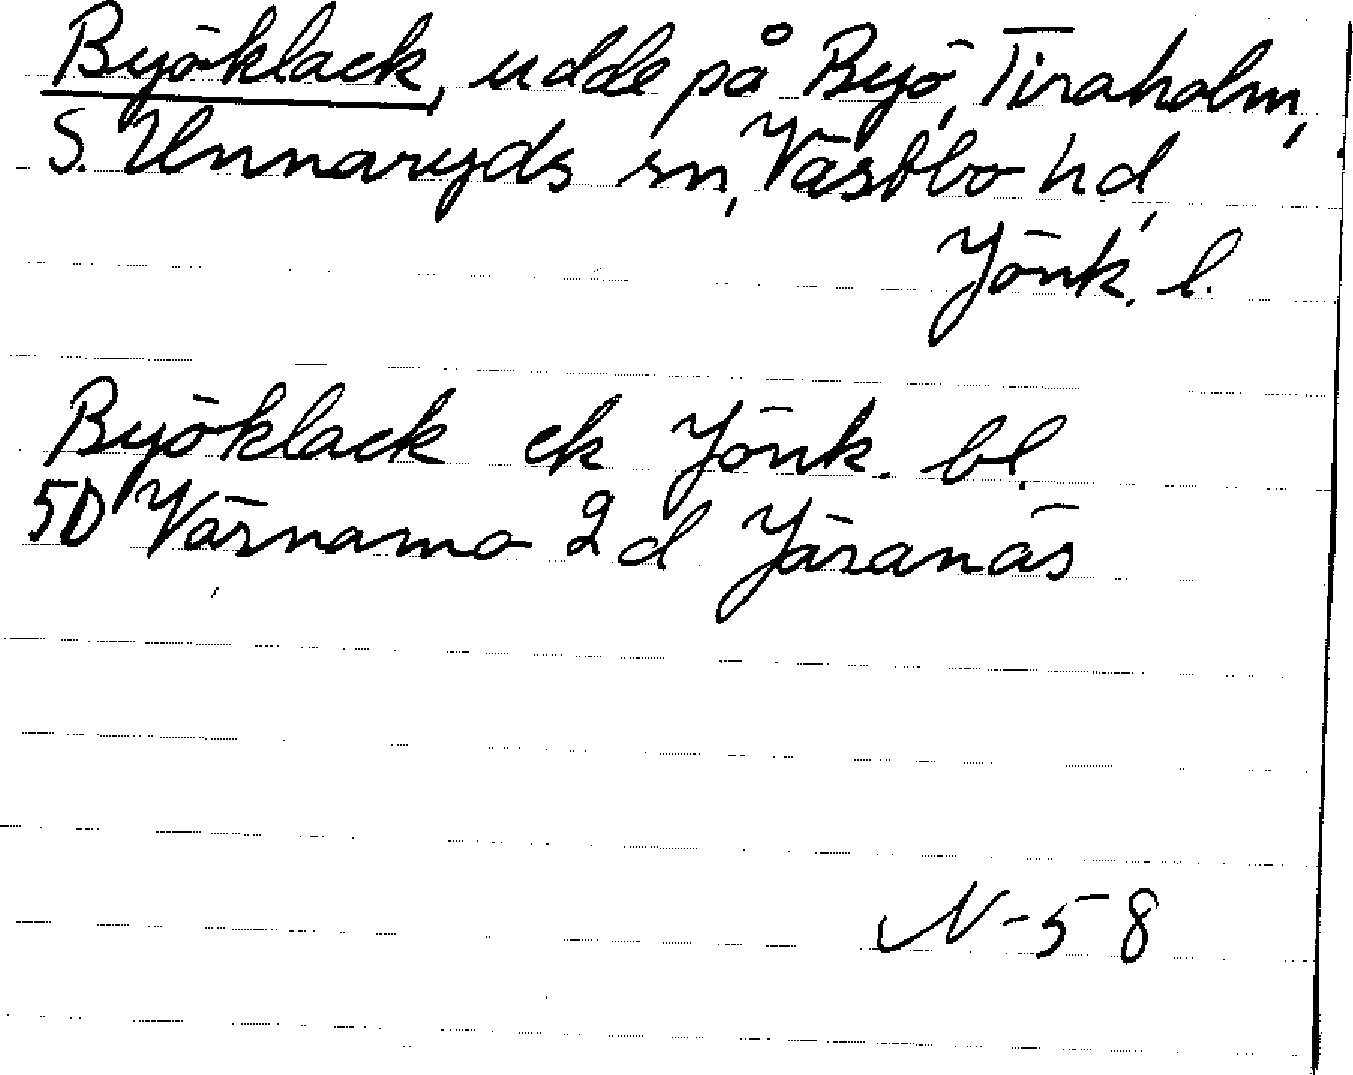 Byöklack, udde på Byö, Tiraholm,
S. Unnaryds sn, Västbo hd,
Jönk. l.
Byöklack ek Jönk. bl.
5D Värnamo 2 d Järanäs
N-58